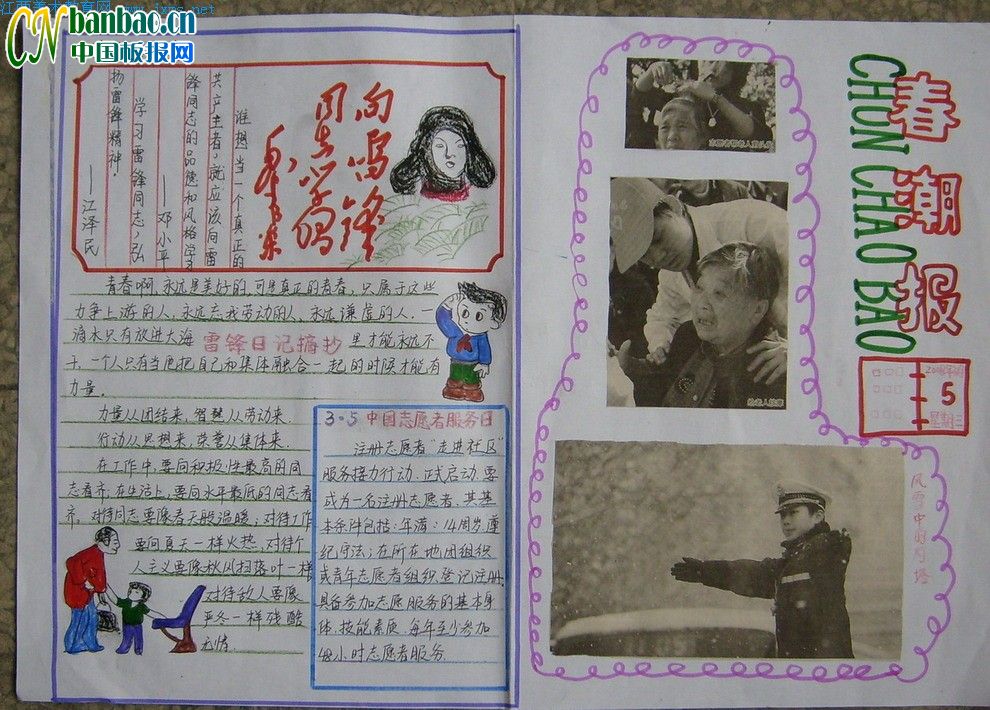 江西美术教育网 www.jxms.net
CN banbao.cn
中国板报网
向雷锋
同志学习
毛泽东
谁想当一个真正的
共产主者,就应该向雷
锋同志的品德和风格学习
——邓小平
学习雷锋同志,弘
扬雷锋精神
——江泽民
青春啊,永远是美好的,可是真正的青春,只属于这些
力争上游的人,永远忘我劳动的人,永远谦虚的人.一
滴水只有放进大海
雷锋日记摘抄
里才能永远不
干,一个人只有当他把自己和集体融合一起的时候才能有
力量.
力量从团结来,智慧从劳动来.
行动从思想来,荣誉从集体来.
在工作中,要向积极性最高的同
志看齐,在生活上,要向水平最低的同志看
齐,对待同志要像春天般温暖,对待工作
要向夏天一样火热,对待个
人主义要像秋风扫落叶一样
对待敌人要像
严冬一样残酷
无情
3·5中国志愿者服务日
注册志愿者“走进社区”
服务接力行动.正式启动.要
成为一名注册志愿者,其基
本条件包括:年满:14周岁,遵
纪守法;在所在地团组织
或青年志愿者组织登记注册
具备参加志愿服务的基本身
体.技能素质.每年至少参加
48小时志愿者服务.
春潮报
CHUN CHAO BAO
5
星期三
给老人按摩
风雪中的丹塔